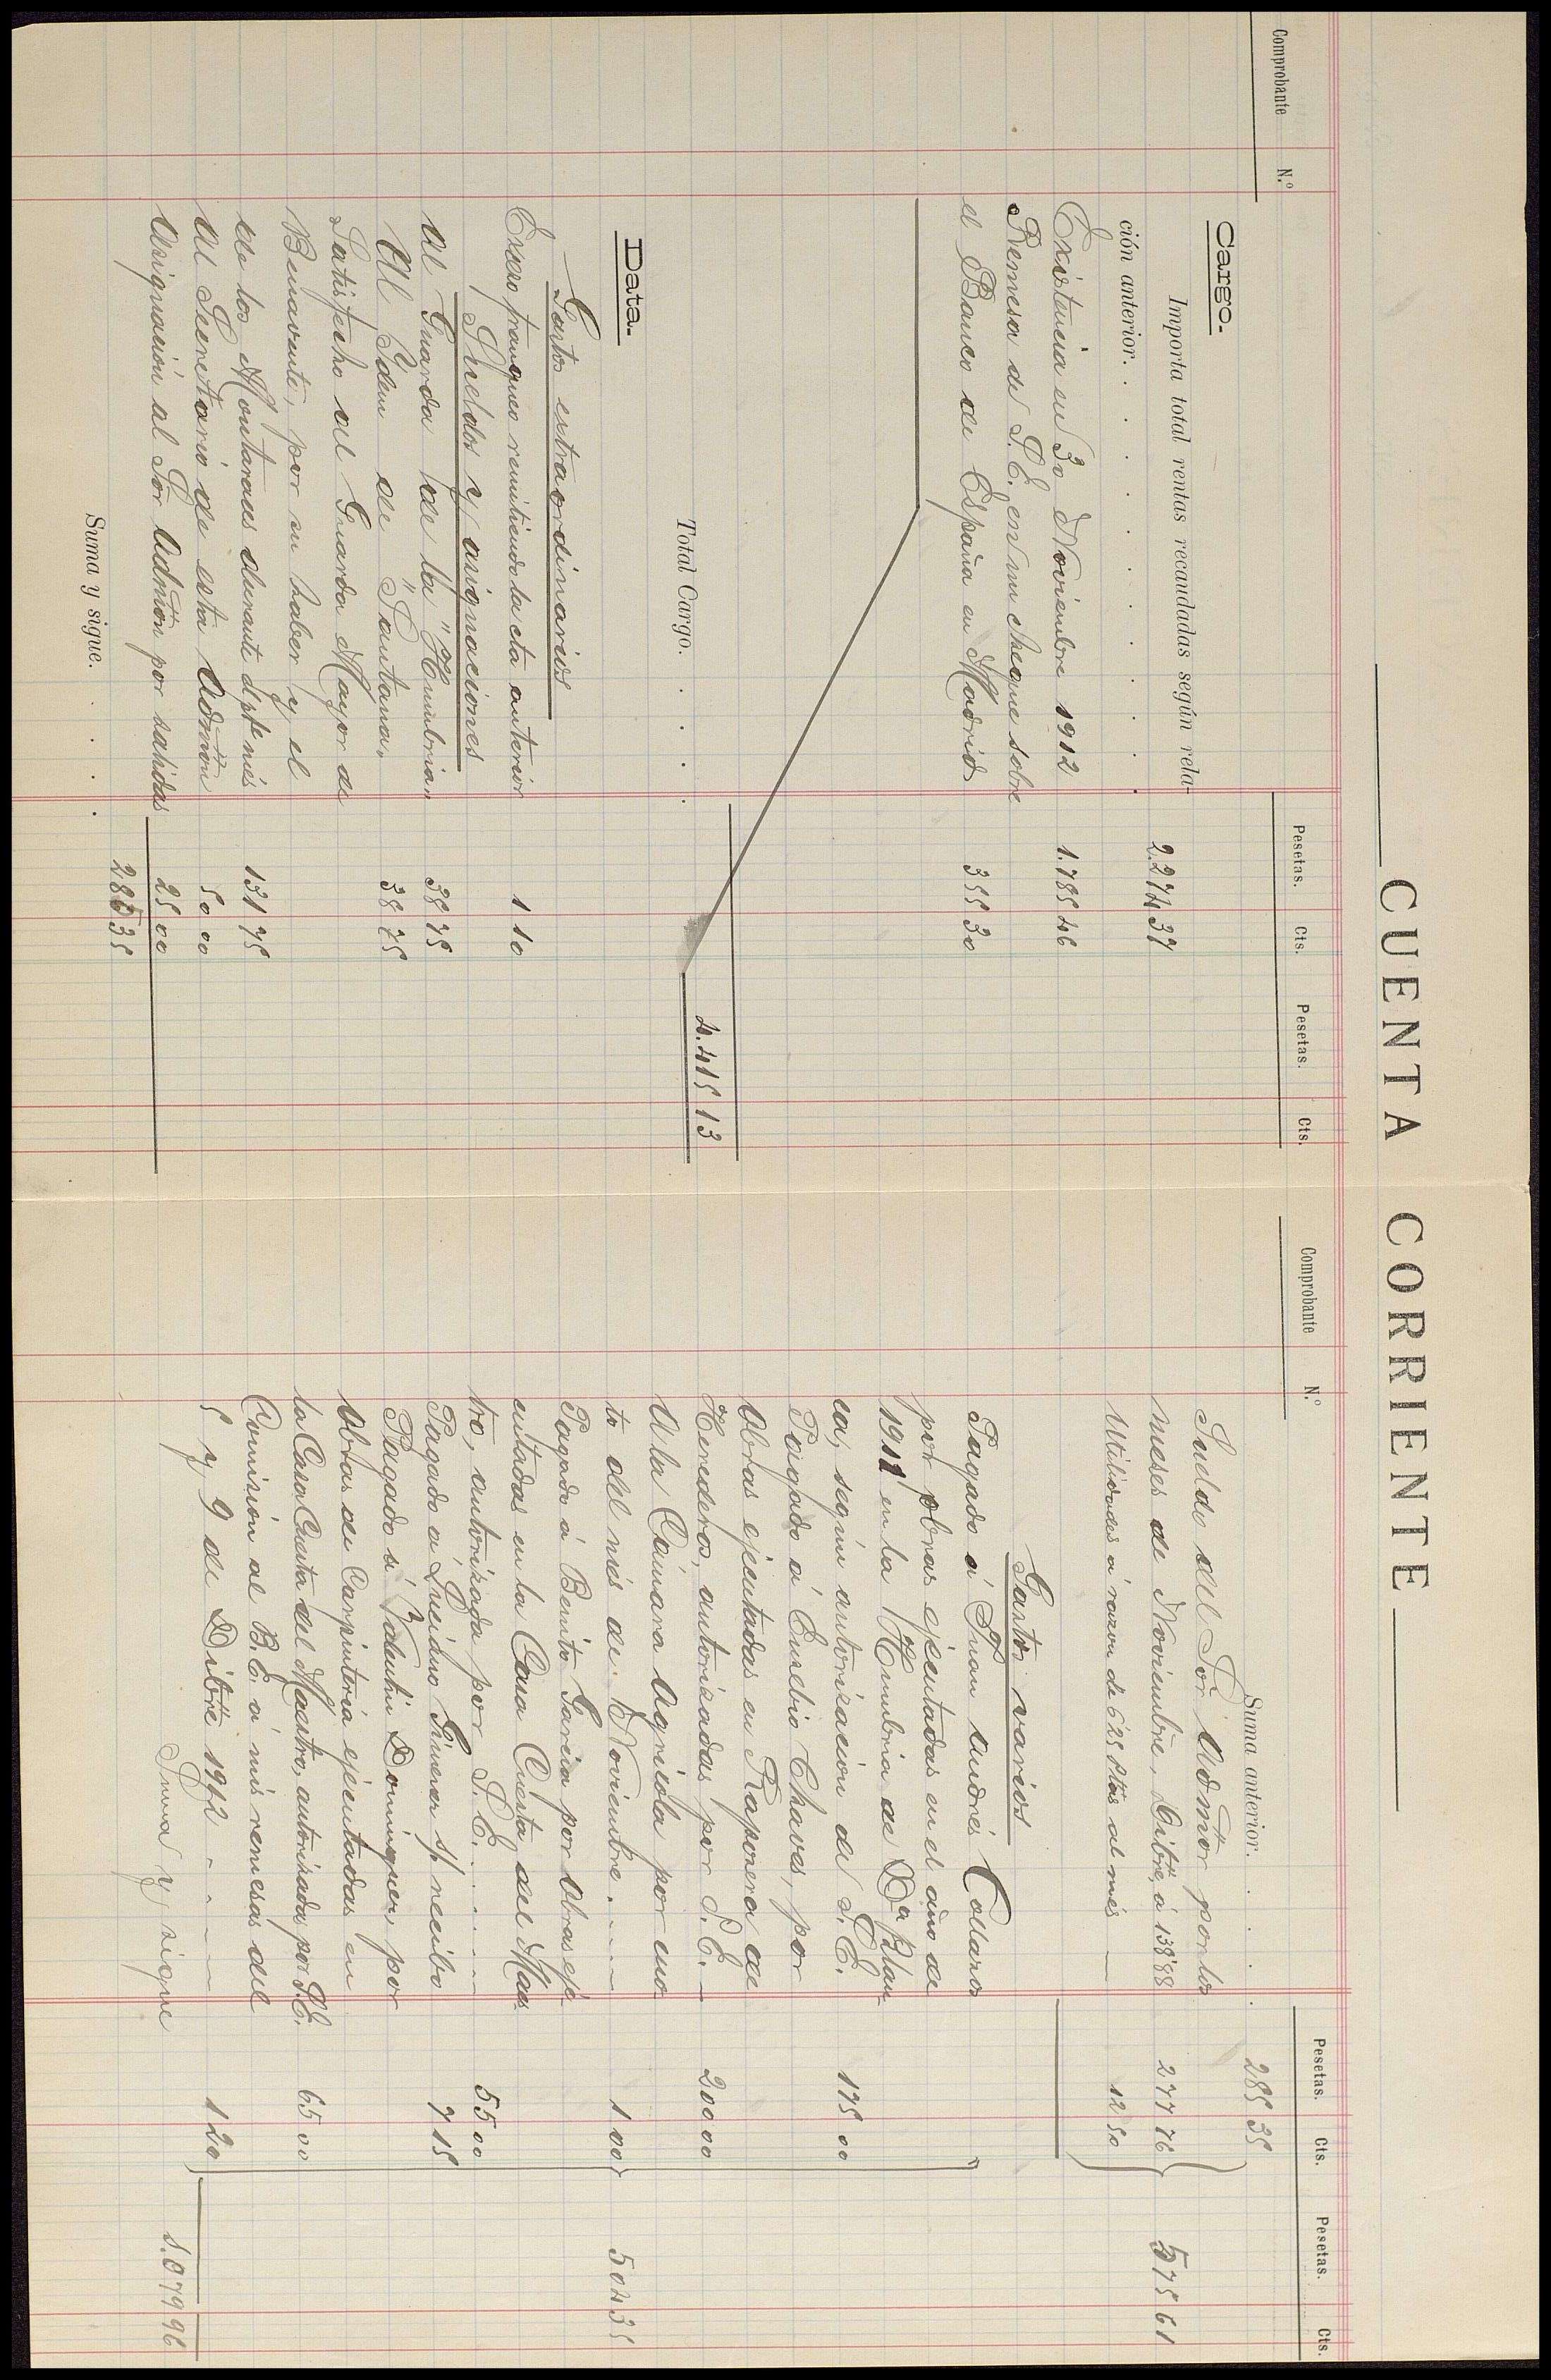 CUENTA CORRIENTE
Comprobante N.º Pesetas. Cts. Pesetas. Cts.
Cargo.
Importa total rentas recaudadas según rela-
ción anterior. . . . . . . . . 2.274 37
Existencia en 30 Noviembre 1912 1.785 46
Remesa de S.E. en un cheque sobre
el Banco de España en Madrid 355 30
Total Cargo. . . . 4.415 13
Data.
Gastos extraordinarios
Exceso franqueo remitiendo la cta anterior 1 10
Sueldos y asignaciones
Al Guarda de la "Humbria" 38 75
Al Idem de "Santana" 38 75
Satisfecho al Guarda Mayor de
Benavente, por su haber y el
de los Montaraces durante dho més 131 75
Al Secretario de esta Admón 50 00
Asignación al Sor Admón por salidas 25 00
Suma y sigue. . . . 285 35
Comprobante N.º Pesetas. Cts. Pesetas. Cts.
Suma anterior. . . . 285 35
Sueldo del Sor Admor por los
meses de Noviembre, Dibre, á 138'88 277 76 575 61
Utilidades á razon de 6'25 Ptas al més — 12 50
Gastos varios
Pagado á Juan Andrés Collazos
por obras ejecutadas en el año de
1911 en la Humbria de Dª Blan-
ca, según autorizacion de S.E. 175 00
Pagado á Eusebio Chaves, por
Obras ejecutadas en Raponera de
Herederos, autorizadas por S.E. — 200 00
A la Cámara Agricola por cuo-
ta del més de Noviembre. — 1 00 504 35
Pagado á Benito Garcia por Obras eje-
cutadas en la Casa Cuesta del Maes-
tro, autorizada por S.E. — 55 00
Pagado á Luciano Gimenez s/ recibo 7 15
Pagado á Valentin Dominguez, por
Obras de Carpinteria ejecutadas en
la Casa Cuesta del Maestro, autorizada por S.E. 65 00
Comisión al B.E. á mis remesas del
5 y 9 de Dibre 1912 — 1 20
Suma y sigue 1.079 96